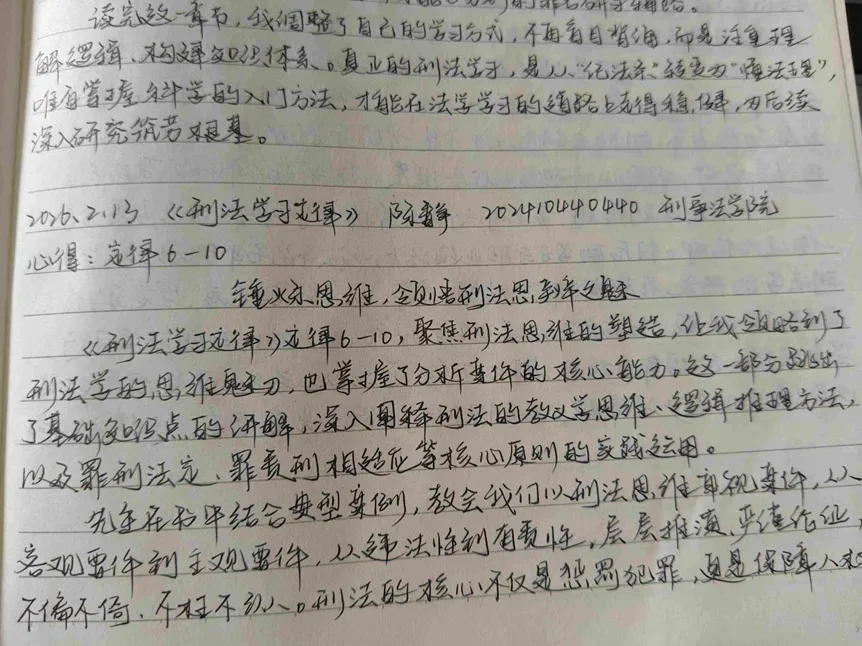 读完这一章节，我调整了自己的学习方式，不再盲目背诵，而是注重理
解逻辑、构建知识体系。真正的刑法学习，是从“记法条”转变为“懂法理”，
唯有掌握科学的入门方法，才能在法学学习的道路上走得稳健，为后续
深入研究筑劳根基。
2026.2.13 《刑法学习定律》 陈静 202410440440 刑事法学院
心得：定律6-10
锤炼思维，领悟刑法思辨之魅
《刑法学习定律》定律6-10，聚焦刑法思维的塑造，让我领略到了
刑法学的思维魅力，也掌握了分析案件的核心能力。这一部分跳出
了基础知识点的讲解，深入阐释刑法的教义学思维、逻辑推理方法，
以及罪刑法定、罪责刑相适应等核心原则的实践运用。
先生在书中结合典型案例，教会我们以刑法思维审视案件，从
客观要件到主观要件，从违法性到有责性，层层推演、严谨论证，
不偏不倚、不枉不纵。刑法的核心不仅是惩罚犯罪，更是保障人权